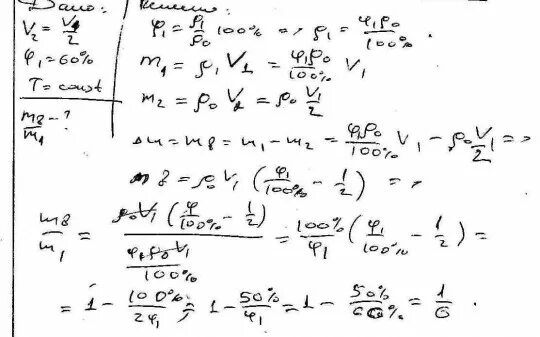 Дано:
V₂ = V₁/2
φ₁ = 60%
T = const
mв/m₁ - ?
Решение:
φ₁ = ρ₁/ρ₀ 100% => ρ₁ = φ₁ρ₀/100% .
m₁ = ρ₁ V₁ = φ₁ρ₀/100% V₁
m₂ = ρ₀ V₂ = ρ₀ V₁/2
Δm = mв = m₁ - m₂ = φ₁ρ₀/100% V₁ - ρ₀ V₁/2 =>
mв = ρ₀ V₁ (φ₁/100% - 1/2) =>
mв/m₁ = ρ₀V₁ (φ/100% - 1/2) / (φ₁ρ₀V₁/100%) = 100%/φ₁ (φ₁/100% - 1/2) =
= 1 - 100%/2φ₁ = 1 - 50%/φ₁ = 1 - 50%/60% = 1/6 .